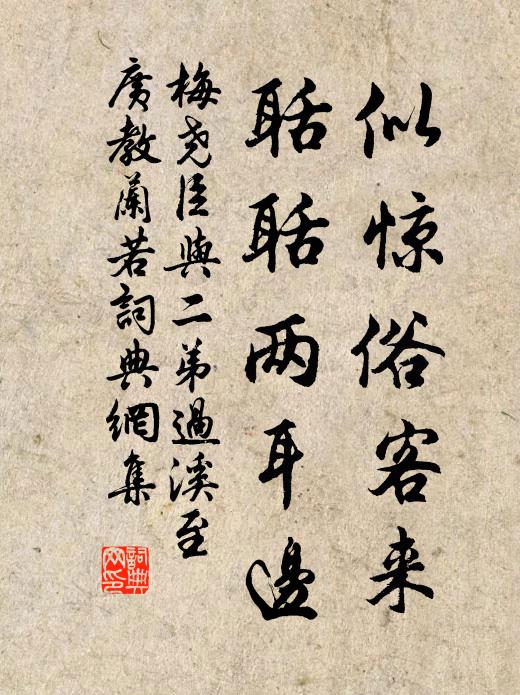 似惊俗客来
聒聒两耳邊
梅尧臣與二弟過溪至
廣教蘭若詞典網集
詞典
网印